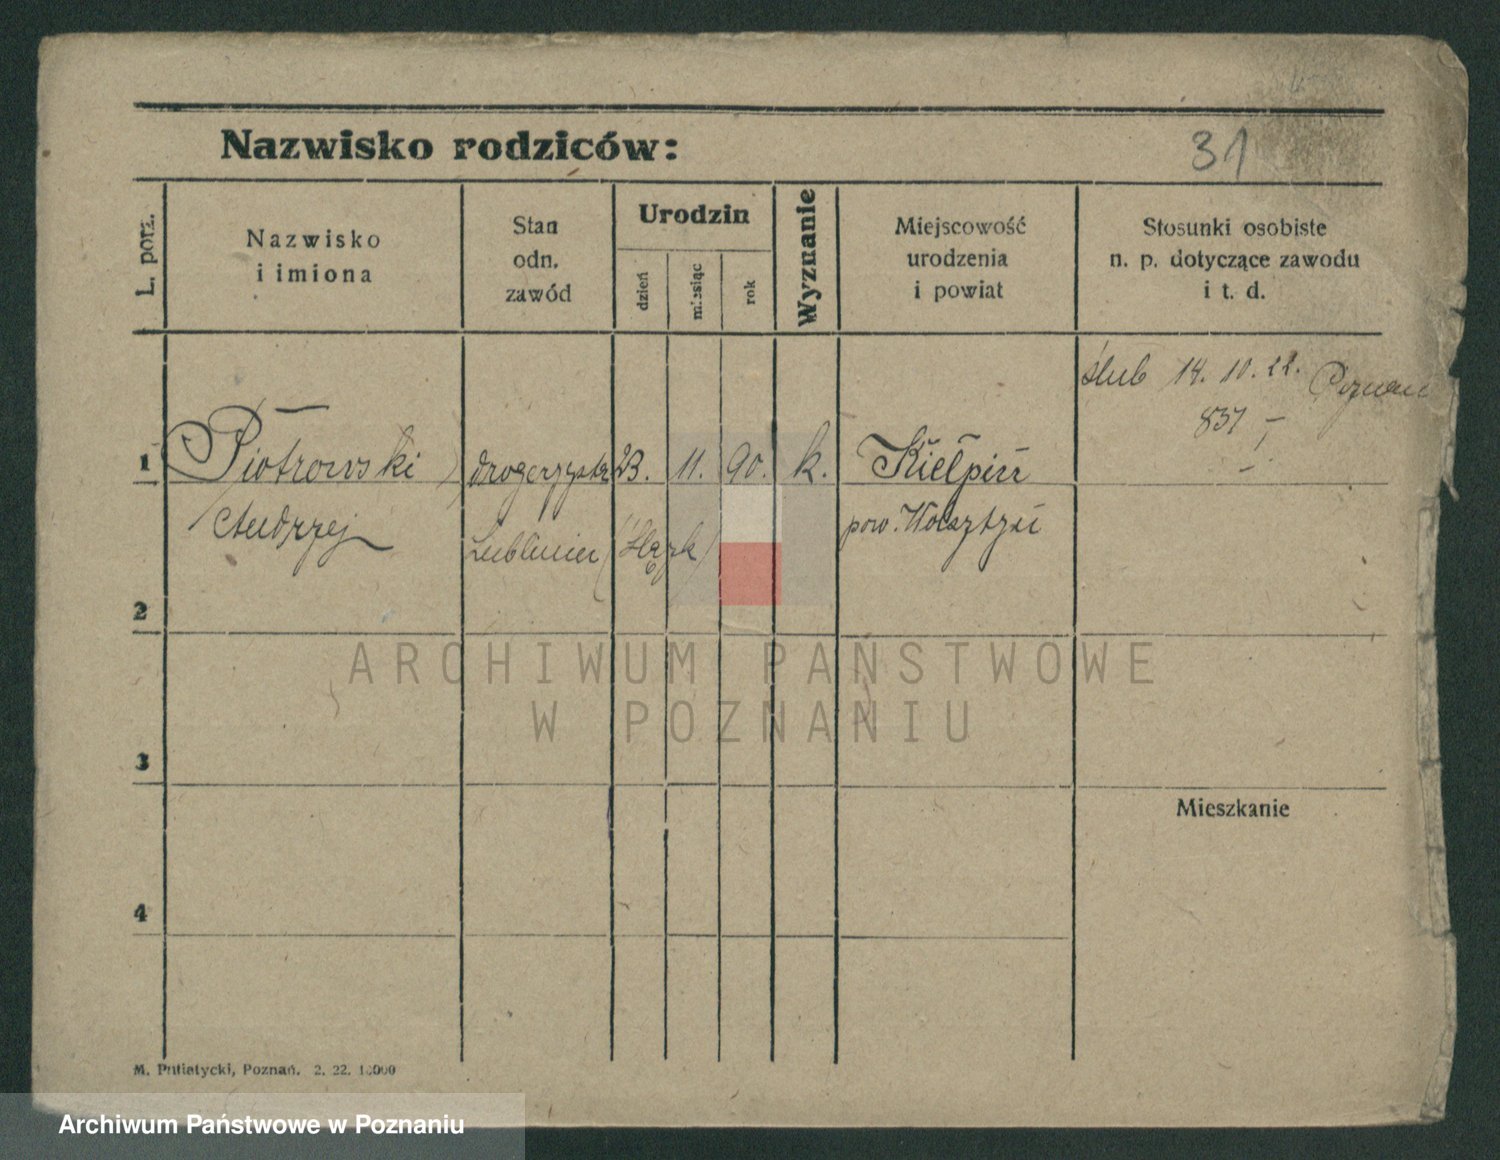 31
Nazwisko rodziców:
L. porz.
Nazwisko
i imiona
Stan
odn.
zawód
Urodzin
dzień
miesiąc
rok
Wyznanie
Miejscowość
urodzenia
i powiat
Stosunki osobiste
n. p. dotyczące zawodu
i t. d.
ślub 14. 10. 22. Poznań
837
1 Piotrowski drogerzysta 23. 11. 90. k. Kiełpin
Andrzej Lubliniec (Śląsk) pow. Wolsztyn
2
ARCHIWUM PAŃSTWOWE
W POZNANIU
3
Mieszkanie
4
M. Putiatycki, Poznań. 2. 22. 10000
Archiwum Państwowe w Poznaniu